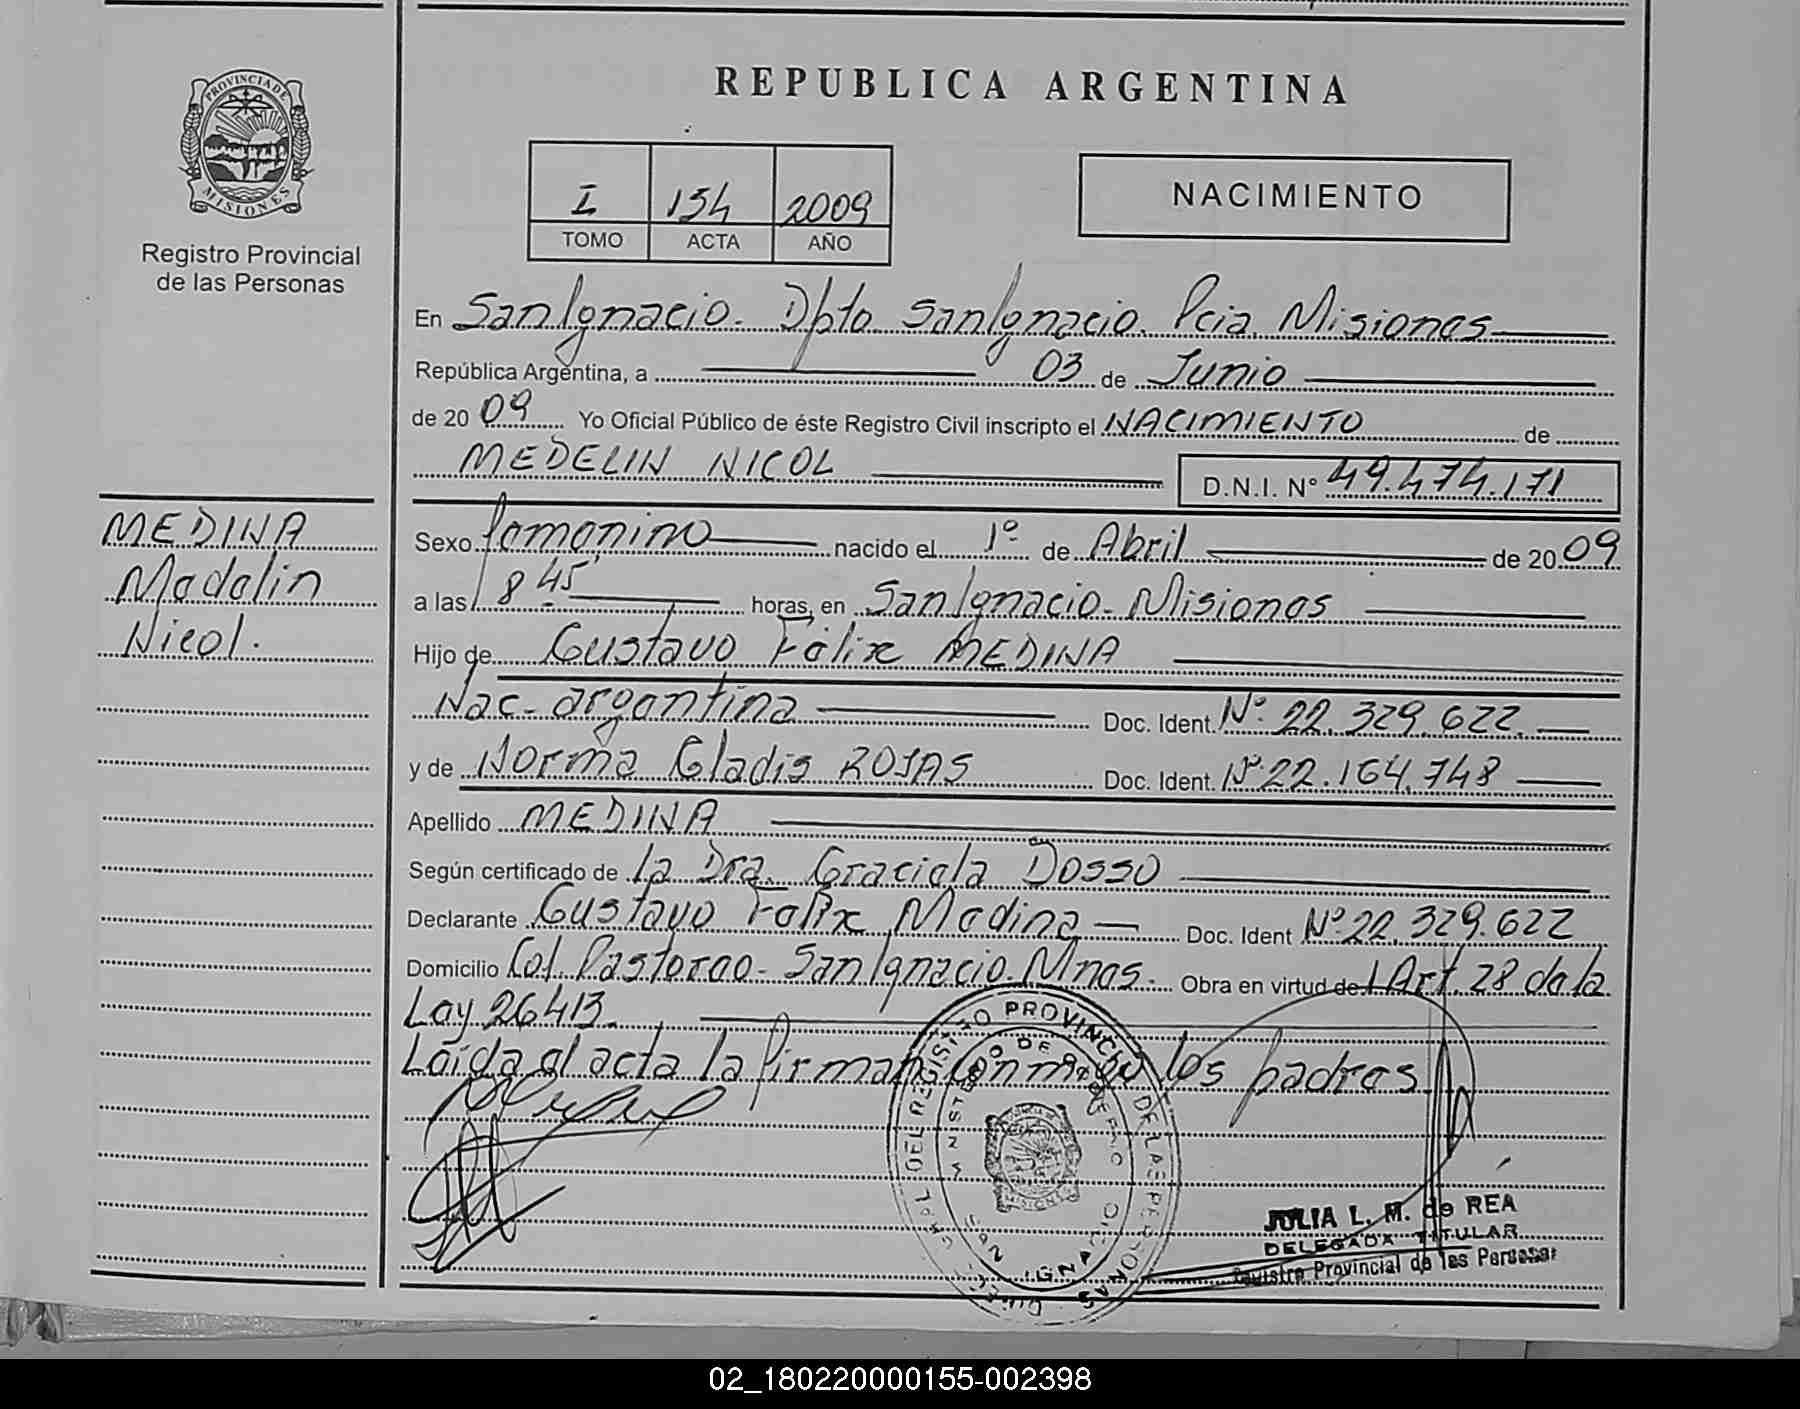 REPUBLICA ARGENTINA
PROVINCIA DE
MISIONES
Registro Provincial
de las Personas
I 154 2009
TOMO ACTA AÑO
NACIMIENTO
En San Ignacio. Dpto San Ignacio. Pcia. Misiones
República Argentina, a 03 de Junio
de 2009 Yo Oficial Público de éste Registro Civil inscripto el NACIMIENTO de
MEDELIN NICOL D.N.I. Nº 49.474.171
MEDINA
Madelin
Nicol.
Sexo femenino nacido el 1º de Abril de 2009
a las 8 45' horas, en San Ignacio - Misiones
Hijo de Gustavo Félix MEDINA
Nac. argentina Doc. Ident. Nº 22.329.622.
y de Norma Gladis ROJAS Doc. Ident. Nº 22.164.748
Apellido MEDINA
Según certificado de la Dra. Graciela Dosso
Declarante Gustavo Felix Medina Doc. Ident Nº 22.329.622
Domicilio Col. Pastoreo - San Ignacio. Mnes. Obra en virtud del Art. 28 de la
Ley 26413.
Leída el acta la firman conmigo los padres
DEL REGISTRO PROVINCIAL DE LAS PERSONAS
MINISTERIO DE GOBIERNO
SAN IGNACIO
JULIA L. M. de REA
DELEGADA TITULAR
Registro Provincial de las Personas
02_180220000155-002398